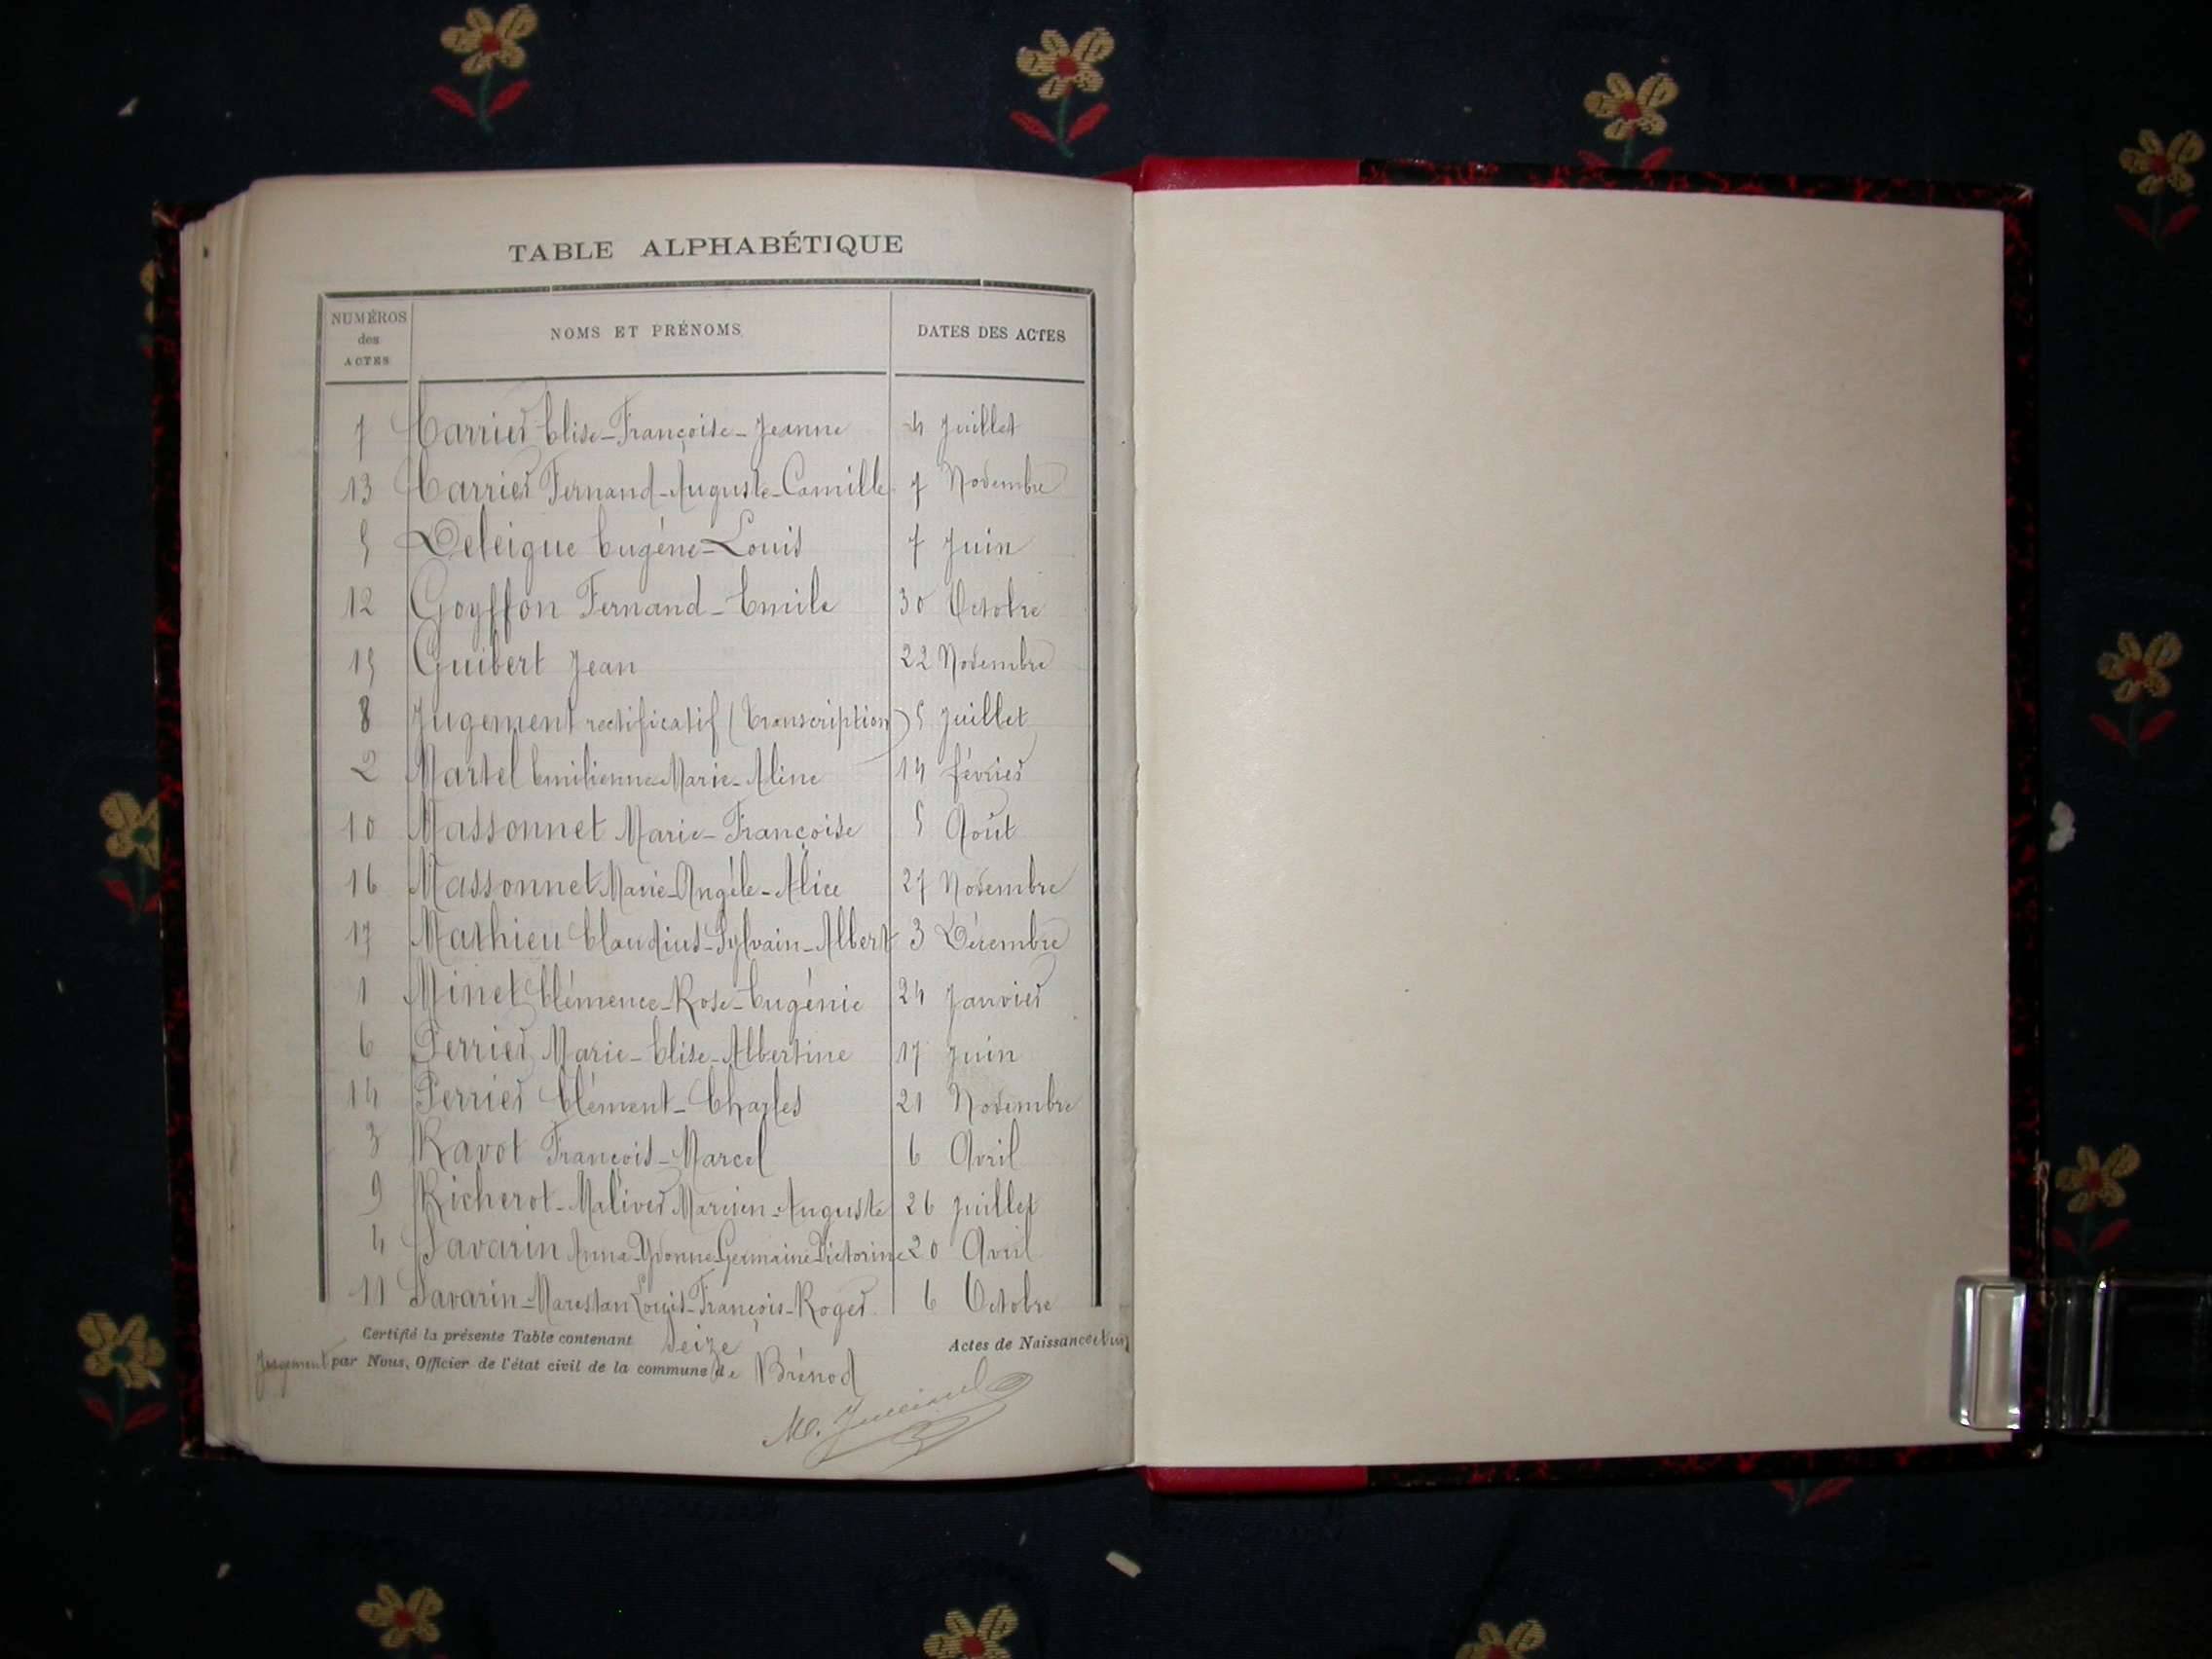 TABLE ALPHABÉTIQUE
NUMÉROS des ACTES NOMS ET PRÉNOMS DATES DES ACTES
7 Carrier Elise-Françoise-Jeanne 4 Juillet
13 Carrier Fernand-Auguste-Camille 7 Novembre
5 Deleigue Eugène-Louis 7 Juin
12 Goyffon Fernand-Emile 30 Octobre
15 Guibert Jean 22 Novembre
8 Jugement rectificatif (Transcription) 5 Juillet
2 Martel Emilienne-Marie-Aline 14 février
10 Massonnet Marie-Françoise 5 Août
16 Massonnet Marie-Angèle-Alice 27 Novembre
17 Mathieu Claudius-Sylvain-Albert 3 Décembre
1 Minet Clémence-Rose-Eugénie 24 Janvier
6 Perrier Marie-Elise-Albertine 17 Juin
14 Perrier Clément-Charles 21 Novembre
3 Ravot François-Marcel 6 Avril
9 Richerot-Maliver Marcien-Auguste 26 Juillet
4 Savarin Anna-Yvonne-Germaine-Victorine 20 Avril
11 Savarin-Marestan Louis-François-Roger 6 Octobre
Certifié la présente Table contenant Seize Actes de Naissance et un
Jugement par Nous, Officier de l'état civil de la commune de Brénod
M.